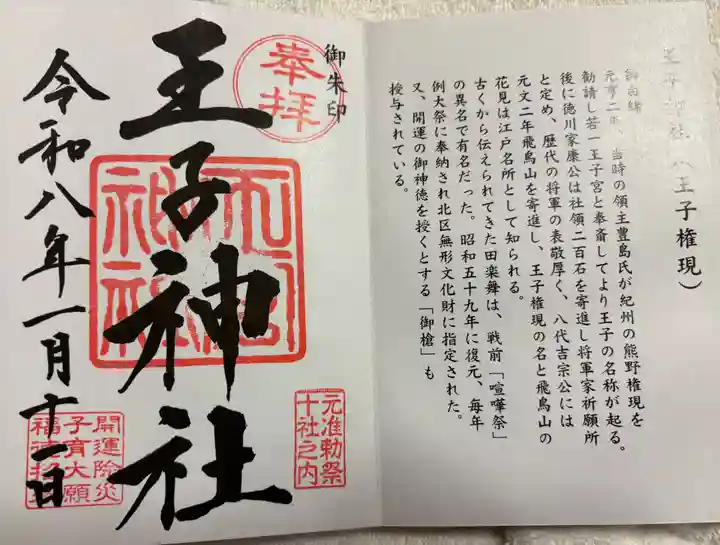 王子神社（王子権現）
御由緒
元亨二年、当時の領主豊島氏が紀州の熊野権現を
勧請し若一王子宮と奉斎してより王子の名称が起る。
後に徳川家康公は社領二百石を寄進し将軍家祈願所
と定め、歴代の将軍の表敬厚く、八代吉宗公には
元文二年飛鳥山を寄進し、王子権現の名と飛鳥山の
花見は江戸名所として知られる。
古くから伝えられてきた田楽舞は、戦前「喧嘩祭」
の異名で有名だった。昭和五十九年に復元、毎年
例大祭に奉納され北区無形文化財に指定された。
又、開運の御神徳を授くとする「御槍」も
授与されている。
御朱印
奉拝
王子神社
元准勅祭
十社之内
令和八年一月十一日
開運除災
子育大願